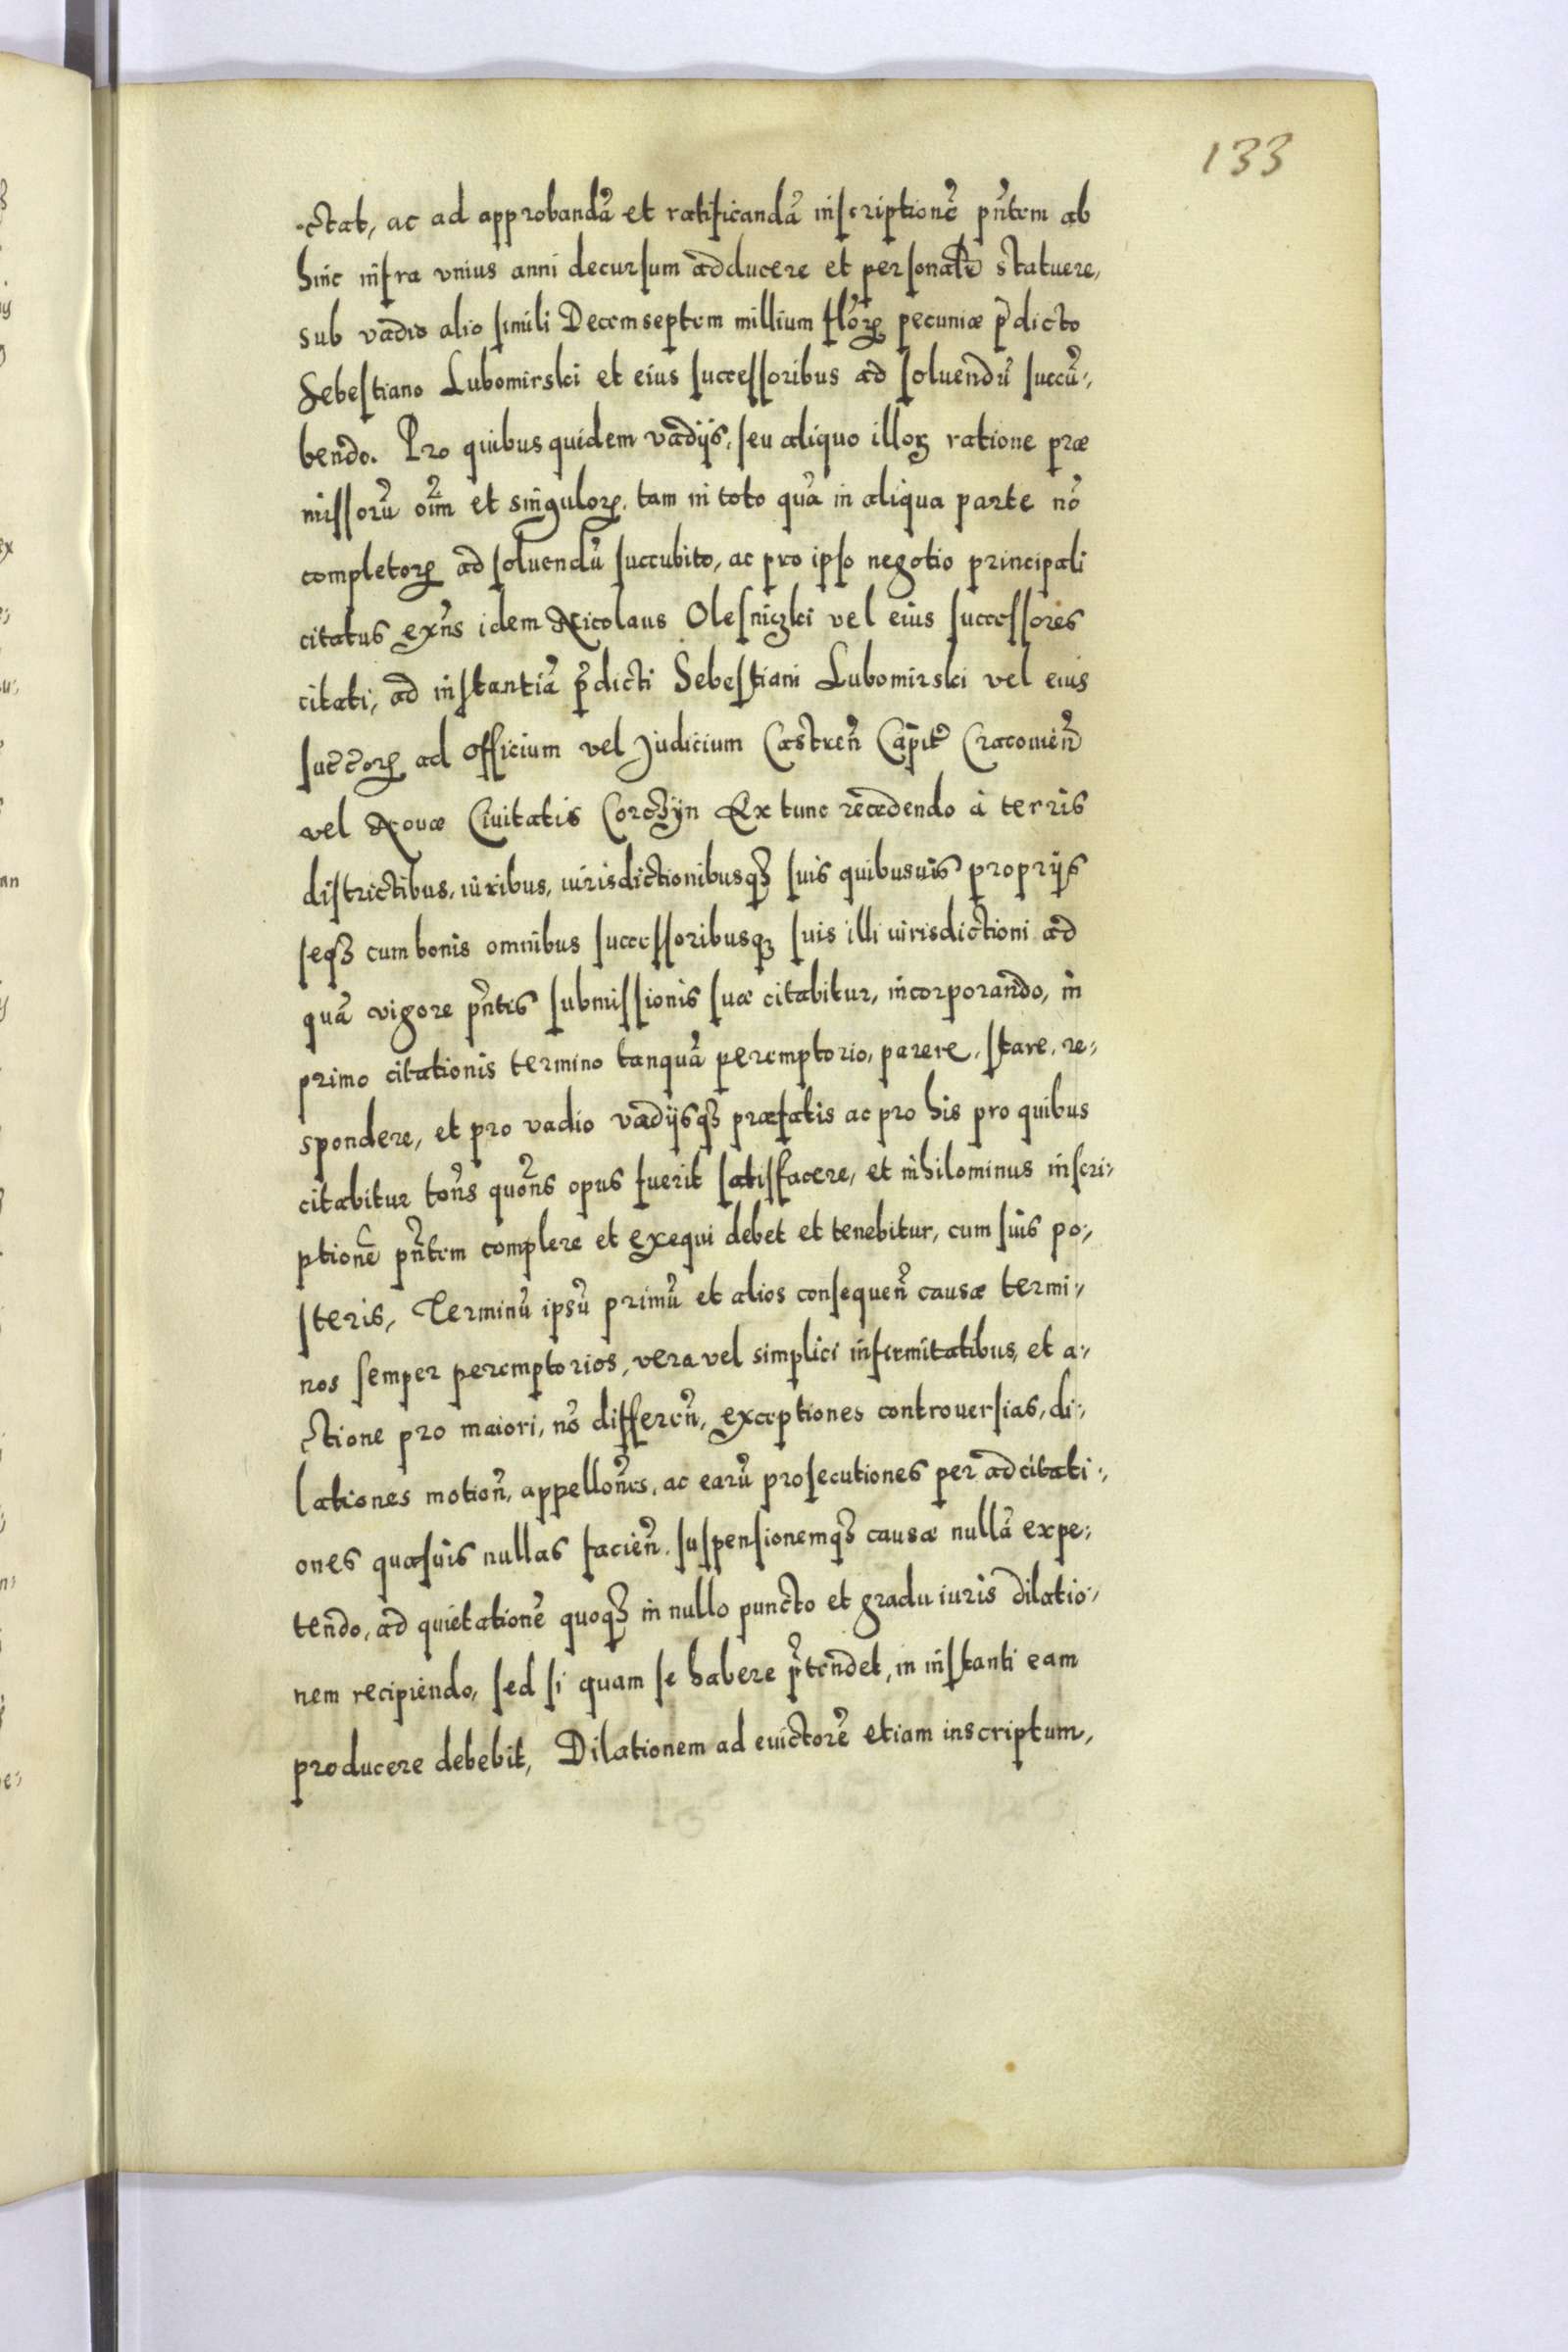 133
ctat, ac ad approbandã et ratificandã inscriptionẽ pñtem ab
hinc infra vnius anni decursum adducere et personalr̃ statuere,
sub vadio alio simili Decemseptem millium flor̃ꝝ pecuniæ p̃dicto
Sebestiano Lubomirski et eius successoribus ad soluendũ succũ-
bendo. Pro quibus quidem vadijs, seu aliquo illoꝝ ratione præ
missorũ oĩm et singuloꝝ, tam in toto quã in aliqua parte nõ
completoꝝ ad soluendũ succubito, ac pro ipso negotio principali
citatus exñs idem Nicolaus Olesniczki vel eius successores
citati, ad instantiã p̃dicti Sebestiani Lubomirski vel eius
succ̃oꝝ ad Officium vel Judicium Castreñ Capit̃ Cracouieñ
vel Nouæ Ciuitatis Corczijn Ex tunc recedendo à terris
districtibus, iuribus, iurisdictionibusqꝫ suis quibusuis proprijs
seqꝫ cum bonis omnibus successoribusqꝫ suis illi iurisdictioni ad
quã vigore pñtis submissionis suæ citabitur, incorporando, in
primo citationis termino tanquã peremptorio, parere, stare, re-
spondere, et pro vadio vadijsqꝫ præfatis ac pro his pro quibus
citabitur tõns quoñs opus fuerit satisfacere, et nihilominus inscri-
ptionẽ pñtem complere et exequi debet et tenebitur, cum suis po-
steris, Terminũ ipsũ primũ et alios consequeñ causæ termi-
nos semper peremptorios, vera vel simplici infirmitatibus, et a-
ctione pro maiori, nõ differeñ, exceptiones controuersias, di-
lationes motioñ, appelloñes, ac earũ prosecutiones per adcitati-
ones quasuis nullas facieñ, suspensionemqꝫ causæ nullã expe-
tendo, ad quietationẽ quoqꝫ in nullo puncto et gradu iuris dilatio-
nem recipiendo, sed si quam se habere p̃tendet, in instanti eam
producere debebit, Dilationem ad euictorẽ etiam inscriptum,